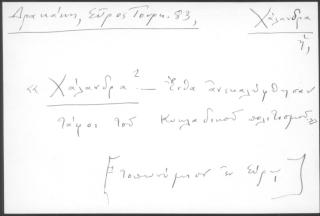 Δρακάκη, Σῦρος Τουρ. 83,
Χάλανδρα
ἡ,
« Χάλανδρα ² — Ἔνθα ἀνεκαλύφθησαν
τάφοι τοῦ Κυκλαδικοῦ πολιτισμοῦ »
[τοπωνύμιον ἐν Σύρῳ]